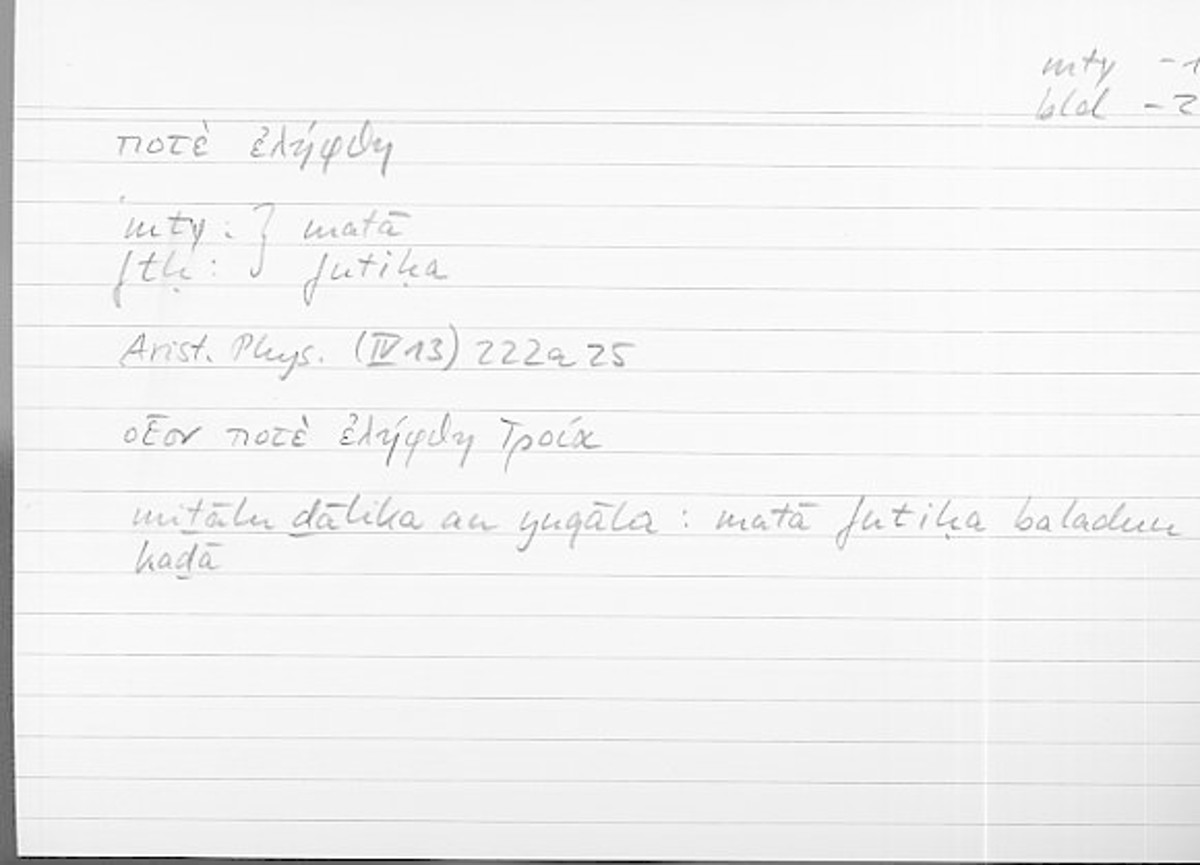 mty - 1
bld - 2
ποτὲ ἐλήφθη
mty : } matā
ftḥ : } futiḥa
Arist. Phys. (IV 13) 222a 25
οἷον ποτὲ ἐλήφθη Τροία
miṯālu ḏālika an yuqāla : matā futiḥa baladun
kaḏā